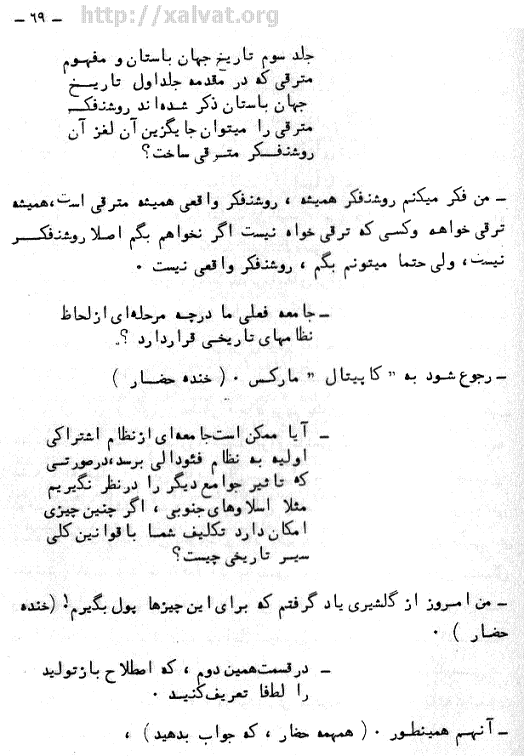 http://xalvat.org
ـ ۶۹ ـ
جلد سوم تاریخ جهان باستان و مفهوم
مترقی که در مقدمه جلد اول تاریخ
جهان باستان ذکر شده اند روشنفکر
مترقی را میتوان جایگزین آن لفز آن
روشنفکر مترقی ساخت؟
ـ من فکر میکنم روشنفکر همیشه ، روشنفکر واقعی همیشه مترقی است، همیشه
ترقی خواهه وکسی که ترقی خواه نیست اگر نخواهم بگم اصلا روشنفکر
نیست، ولی حتما میتونم بگم ، روشنفکر واقعی نیست .
ـ جامعه فعلی ما درچه مرحله‌ای ازلحاظ
نظامهای تاریخی قراردارد ؟.
ـ رجوع شود به " کاپیتال " مارکس . ( خنده حضار )
ـ آیا ممکن است جامعه‌ای ازنظام اشتراکی
اولیه به نظام فئودالی برسد، درصورتی
که تاثیر جوامع دیگر را درنظر نگیریم
مثلا اسلاوهای جنوبی ، اگر چنین چیزی
امکان دارد تکلیف شما با قوانین کلی
سیر تاریخی چیست؟
ـ من امروز از گلشیری یاد گرفتم که برای این چیزها پول بگیرم! (خنده
حضار ) .
ـ درقسمت همین دوم ، که اصطلاح بازتولید
را لطفا تعریف کنید .
ـ آنهم همینطور . ( همهمه حضار ، که جواب بدهید ) ،